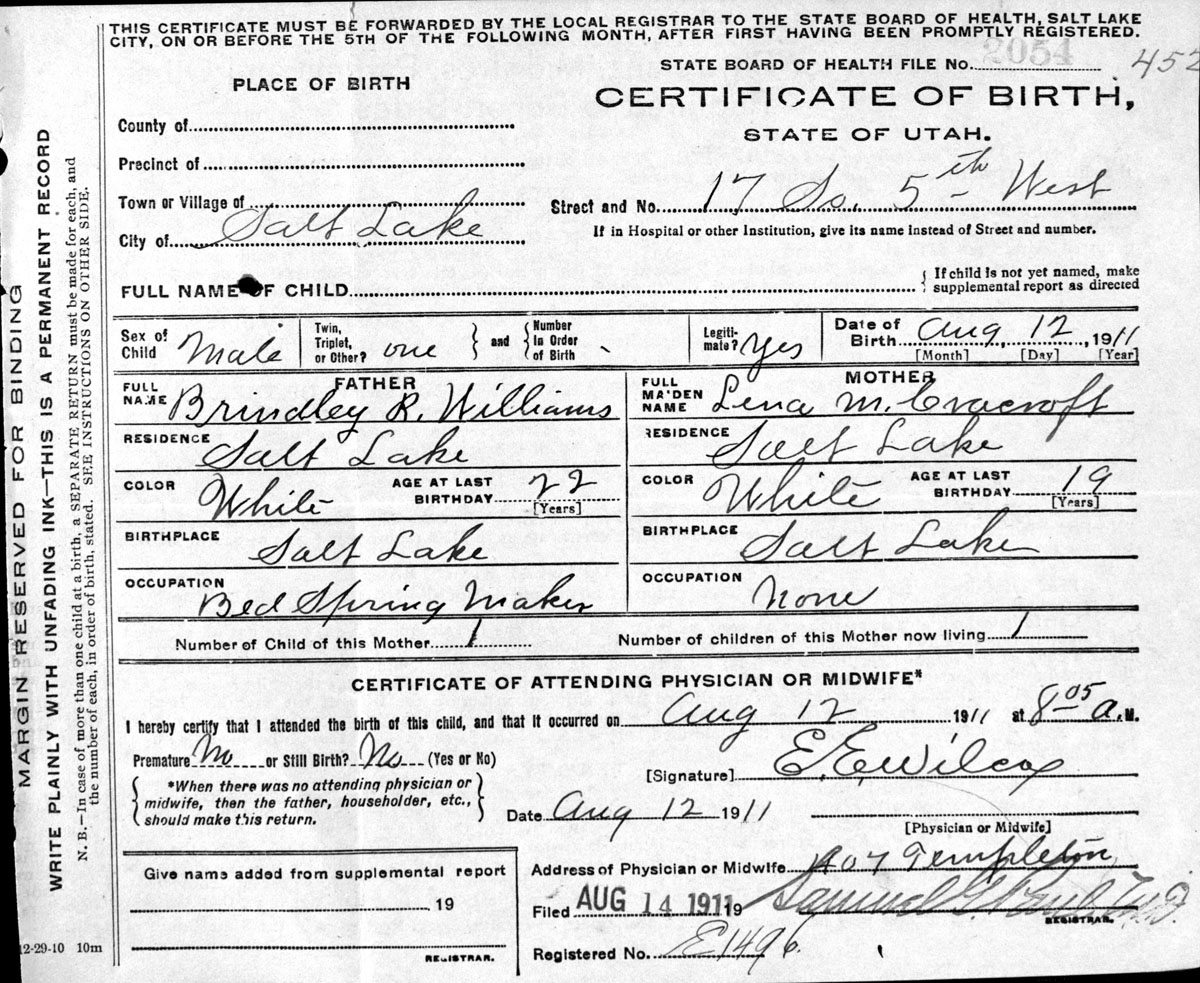 THIS CERTIFICATE MUST BE FORWARDED BY THE LOCAL REGISTRAR TO THE STATE BOARD OF HEALTH, SALT LAKE
CITY, ON OR BEFORE THE 5TH OF THE FOLLOWING MONTH, AFTER FIRST HAVING BEEN PROMPTLY REGISTERED.
2054
452
STATE BOARD OF HEALTH FILE No.
PLACE OF BIRTH
CERTIFICATE OF BIRTH,
STATE OF UTAH.
County of
Precinct of
Town or Village of
City of Salt Lake
Street and No. 17 So. 5th West
If in Hospital or other Institution, give its name instead of Street and number.
FULL NAME OF CHILD
{ If child is not yet named, make
supplemental report as directed
Sex of Child Male
Twin, Triplet, or Other? one } and { Number in Order of Birth
Legiti-mate? Yes
Date of Birth Aug 12, 1911
[Month] [Day] [Year]
FATHER
FULL NAME Brindley R. Williams
MOTHER
FULL MAIDEN NAME Lena M. Cracroft
RESIDENCE Salt Lake
RESIDENCE Salt Lake
COLOR White AGE AT LAST BIRTHDAY 22 [Years]
COLOR White AGE AT LAST BIRTHDAY 19 [Years]
BIRTHPLACE Salt Lake
BIRTHPLACE Salt Lake
OCCUPATION Bed Spring Maker
OCCUPATION None
Number of Child of this Mother 1
Number of children of this Mother now living 1
CERTIFICATE OF ATTENDING PHYSICIAN OR MIDWIFE*
I hereby certify that I attended the birth of this child, and that it occurred on Aug 12 1911 at 8 05 a.M.
Premature No or Still Birth? No (Yes or No)
{ *When there was no attending physician or
midwife, then the father, householder, etc.,
should make this return. }
[Signature] E. E. Wilcox
Date Aug 12 1911
[Physician or Midwife]
Give name added from supplemental report
19
REGISTRAR.
Address of Physician or Midwife 407 Templeton
Filed AUG 14 1911 19 Samuel G. Paul M.D.
REGISTRAR.
Registered No. E1496
MARGIN RESERVED FOR BINDING
WRITE PLAINLY WITH UNFADING INK—THIS IS A PERMANENT RECORD
N. B.—In case of more than one child at a birth, a SEPARATE RETURN must be made for each, and
the number of each, in order of birth, stated. SEE INSTRUCTIONS ON OTHER SIDE.
12-29-10 10m